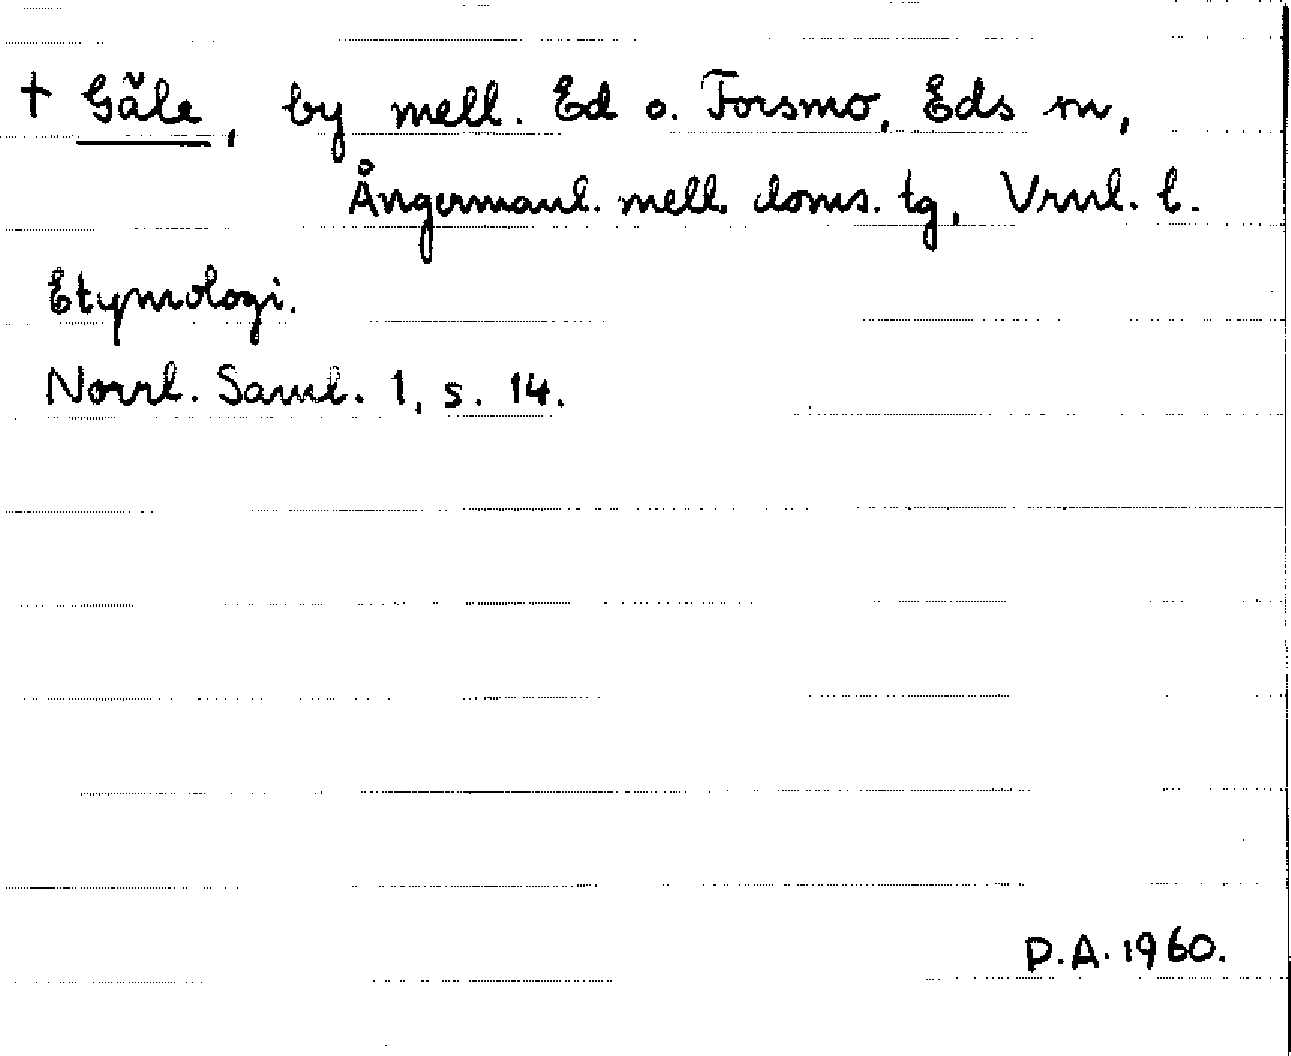 † Gåle, by mell. Ed o. Forsmo, Eds sn,
Ångermanl. mell. doms. tg, Vrnl. l.
Etymologi.
Norrl. Saml. 1, s. 14.
D.A. 1960.